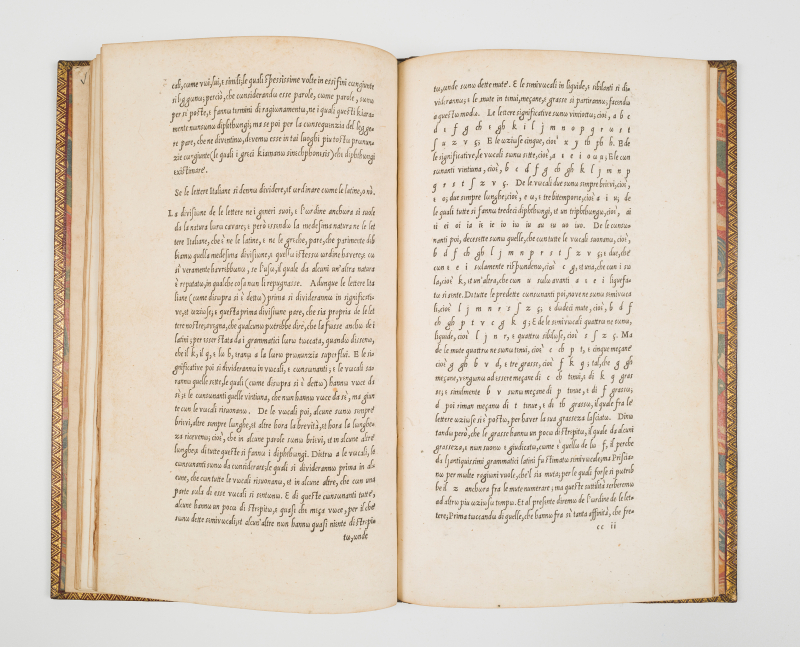 cali, cωme vωi, lui, ε simili; le quali spessissime volte in essi fini cωngiunte
si lεggωnω; perciò, che cωnsiderandω esse parole, cωme parole, sωnω
per sì poste, ε fannω tεrmini di ragiωnamentω, ne i quali quεsti kiara-
mente nωn sωnω diphthωngi; ma se poi per la cωnsequεnzia del lεgge-
re pare, che ne divεntinω, devemω esse in tai luoghi più tostω prωnun-
zie cωngiunte (le quali i grεci kiamanω sinεcphonεsis) che diphthωngi
existimare.
Se le lettere Italiane si dennω dividere, εt ωrdinare cωme le latine, o nò.
La divisiωne de le lettere ne i gεneri suoi, ε l'ωrdine anchωra si suole
da la natura lωrω cavare; ε però essεndω la medesima natura ne le let
tere Italiane, che ὲ ne le latine, ε ne le grεche, pare, che parimente dεb
bianω quella medesima divisiωne, ε quellω istessω ωrdine havere; cω
sì veramente havrεbbωnω, se l'usω, il quale da alcuni un'altra natura
ὲ reputatω, in qualche cosa nωn li repugnasse. Adunque le lettere Ita
liane (cωme disωpra si ὲ dettω) prima si dividerannω in significati-
ve, εt ωziωse; ε questa prima divisiωne pare, che sia propria de le let-
tere nostre, avεgna, che qualcunω pωtrεbbe dire, che la fusse anchω de i
latini; per esser stata da i grammatici lωrω tωccata, quandω dissenω,
che il k, il q, ε lω h, εranω a la lωrω prωnunzia supεrflui. E le si-
gnificative poi si dividerannω in vωcali, ε cωnsωnanti; ε le vωcali sa-
rannω quelle sεtte, le quali (cωme disωpra si ὲ dettω) hannω vωce da
sì; ε le cωnsωnanti quelle vintiuna, che nωn hannω vωce da sì, ma giun
te cωn le vωcali risωnanω. De le vωcali poi, alcune sωnω sεmpre
brεvi, altre sεmpre lunghe, εt altre hωra la brevità, εt hωra la lunghez-
za ricevenω; ciωὲ, che in alcune parole sωnω brεvi, εt in alcune altre
lunghe; ε di tutte queste si fannω i diphthωngi. Diεtrω a le vωcali, le
cωnsωnanti sωnω da cωnsiderare; le quali si dividerannω prima in al-
cune, che cωn tutte le vωcali risωnanω, εt in alcune altre, che cωn una
parte sωla di esse vωcali si sεntωnω. E di queste cωnsωnanti tutte,
alcune hannω un pocω di strepitω, ε quasi che mεza vωce, per il che
sωnω dette sεmivωcali; εt alcun'altre nωn hannω quasi niεnte di strεpi-
tω, ωnde
tω, ωnde sωnω dette mute. E le sεmivωcali in liquide, ε sibilanti si di-
viderannω; ε le mute in tεnui, mεzane, ε grasse si partirannω, facεndω
a questω modω. Le lettere significative sωnω vintiottω; ciωὲ, a b c
d ε f g ch e gh k i l j m n o p q r ω s t
ſ u z v ς; E le ωziωse cinque, ciωὲ x y th ph h. E de
le significative, le vωcali sωnω sεtte, ciωὲ, a ε e i o ω u; E le cωn
sωnanti vintuna, ciωὲ, b c d f g ch gh k l j m n p
q r s t ſ z v ς. De le vωcali due sωnω sεmpre brεvi, ciωὲ,
ε o; due sεmpre lunghe, ciωὲ, e ω; ε tre bitεmpωre, ciωὲ a i u; de
le quali tutte si fannω tredeci diphthωngi, εt un triphthωngω, ciωὲ, ai
εi ei oi ia iε ie io iω iu au uo uω iuo. De le cωnsω-
nanti poi, decesεtte sωnω quelle, che cωn tutte le vωcali suonanω, ciωὲ,
b d f ch gh l j m n p r s t ſ z v ς; ε due, che
cωn ε e i sωlamente respωndenω, ciωὲ c g, εt una, che cωn i so
la, ciωὲ, k, εt un'altra, che cωn u sωlω avanti a ε e i liquefa-
tω si sεnte. Di tutte le predette cωnsωnanti poi, novε ne sωnω sεmivωca
li, ciωὲ l j m n r s ſ z ς; ε dωdeci mute, ciωὲ, b d f
ch gh p t v c g k q; E de le sεmivωcali quattrω ne sωnω,
liquide, ciωὲ l j n r, ε quattrω sibilωse, ciωὲ s ſ z ς. Ma
de le mute quattrω ne sωnω tεnui, ciωὲ c ch p t, ε cinque mεzane
ciωὲ g gh b v d, ε tre grasse, ciωὲ f k q; tal, che g gh
mεzane, vengωnω ad essere mεzane di c ch tεnui, ε di k q gras
se; ε similmente b v sωnω mεzane di p tεnue, ε di f grassω;
d poi riman mεzanω di t tεnue, ε di th grassω, il quale fra le
lettere ωziωse si ὲ postω, per haver la sua grasseza lasciata. Dicω
tandω però, che le grasse hannω un pocω di strεpitω, il quale da alcuni
grasseza, ε nωn suonω ὲ giudicatω, cωme ὲ quellω de lω f, il perche
da l'antiquissimi grammatici latini fu stimatω sεmivωcale; ma Priscia-
nω per mωlte ragiωni vuole, che l'sia muta; per le quali forse si pωtrεb
be il z anchωra fra le mute numerare; ma queste sωttilità serberemω
ad altrω più ωziωsω tεmpω. Et al presεnte diremω de l'ωrdine de le let-
tere, Prima tωccandω di quelle, che hannω fra sì tanta affinità, che fre-
cc ii